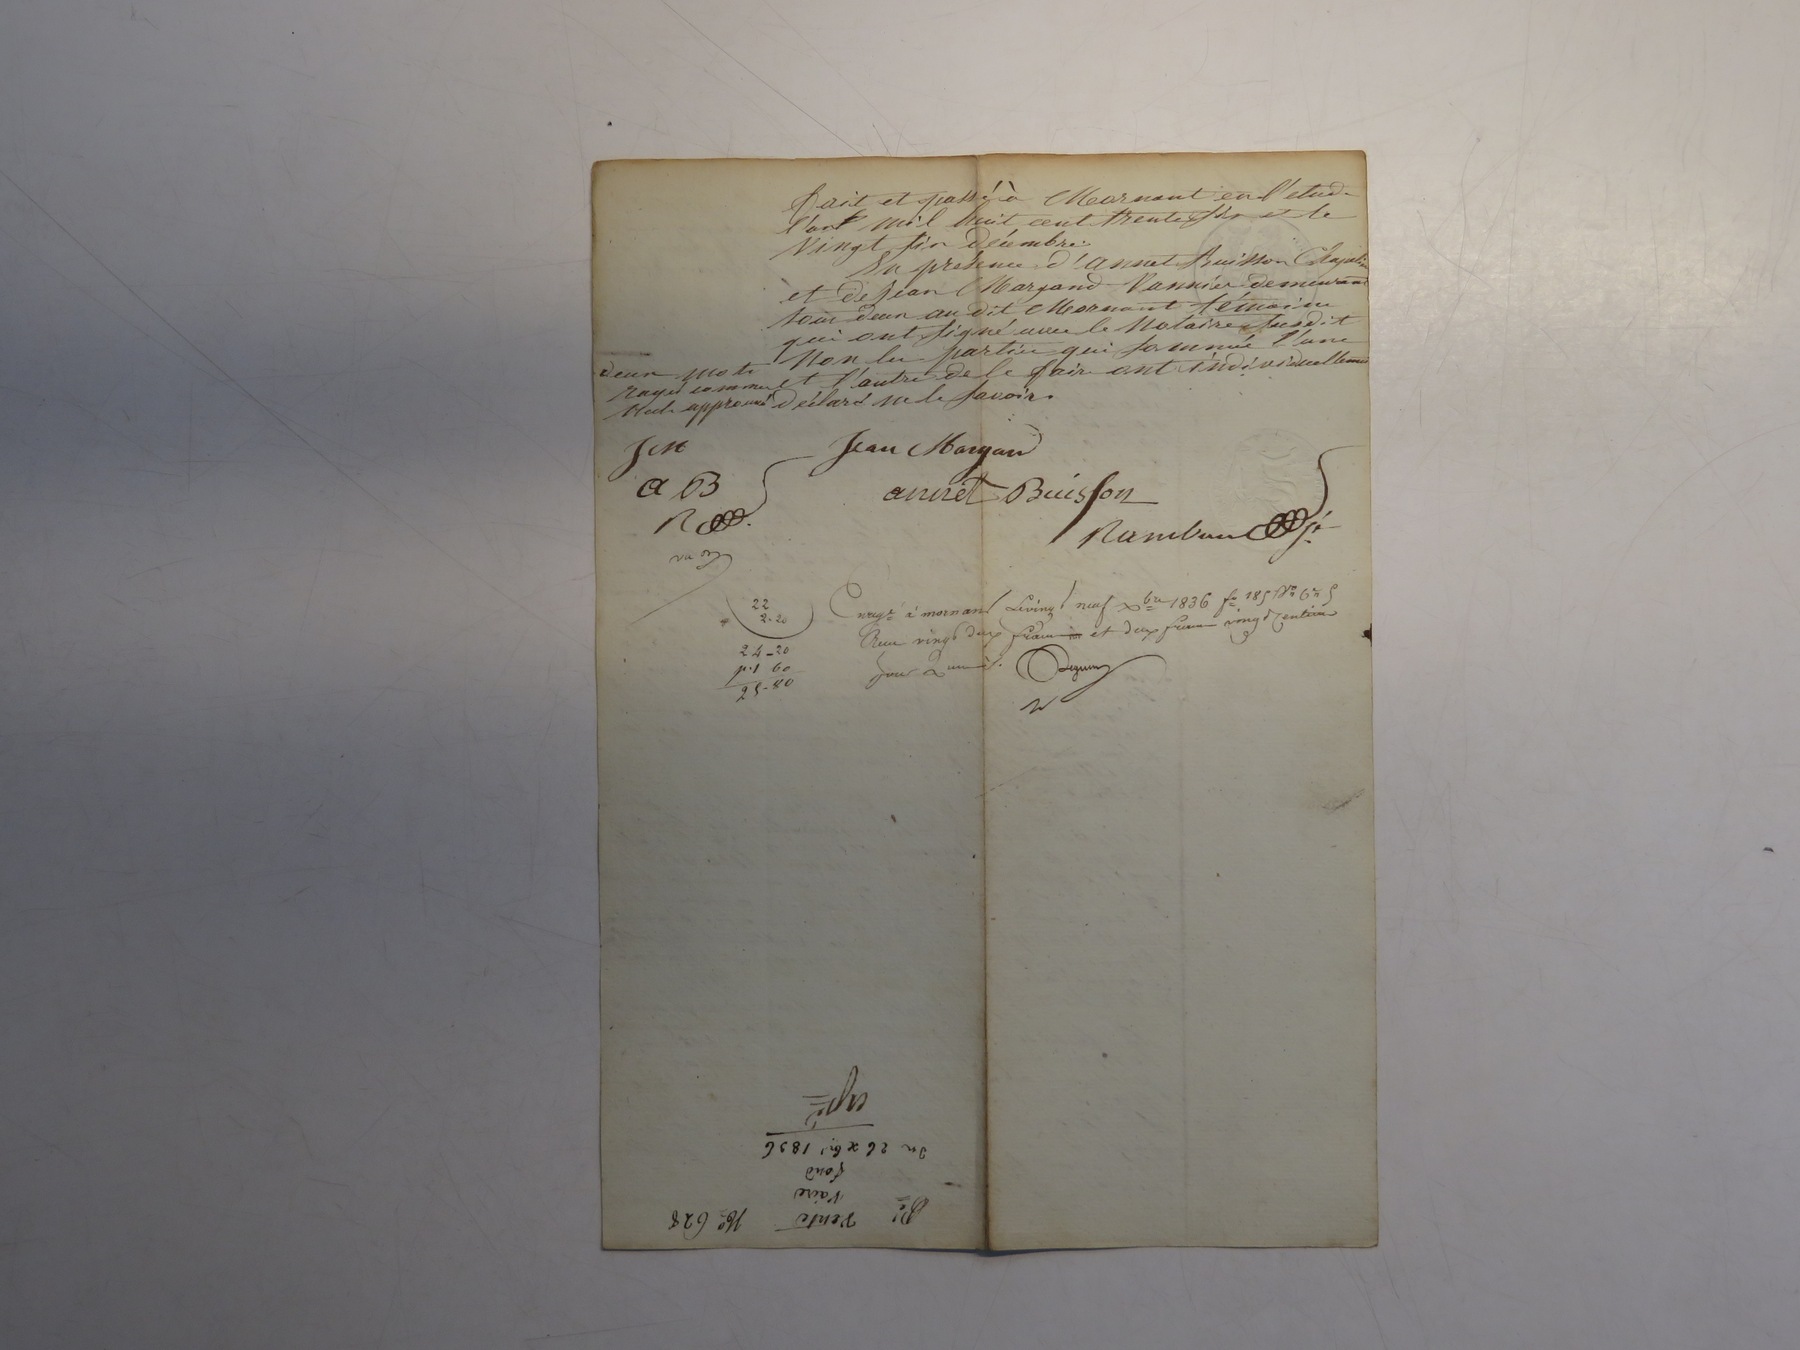 Fait et passé à Mornant en l'étude
l'an mil huit cent trente six et le
Vingt six Décembre.
En présence d'annet Buisson Chapelier
et de Jean Margand Vannier demeurant
tous deux au dit Mornant témoins
qui ont signé avec le Notaire susdit
Non les parties qui sommées l'une
et l'autre de le faire ont individuellement
déclaré ne le savoir.
deux mots
rayés comme
nuls approuvés
JM
Jean Margand
a B
annet Buisson
R
Rambau
22
2-20
24-20
p. 1 60
25-80
Enregé à mornant le vingt neuf Xbre 1836 fo 185 Vo Cse 5
Reçu vingt deux francs et deux francs vingt centimes
pour
No 628
Vente
Vaire
fond
Du 26 xbre 1836